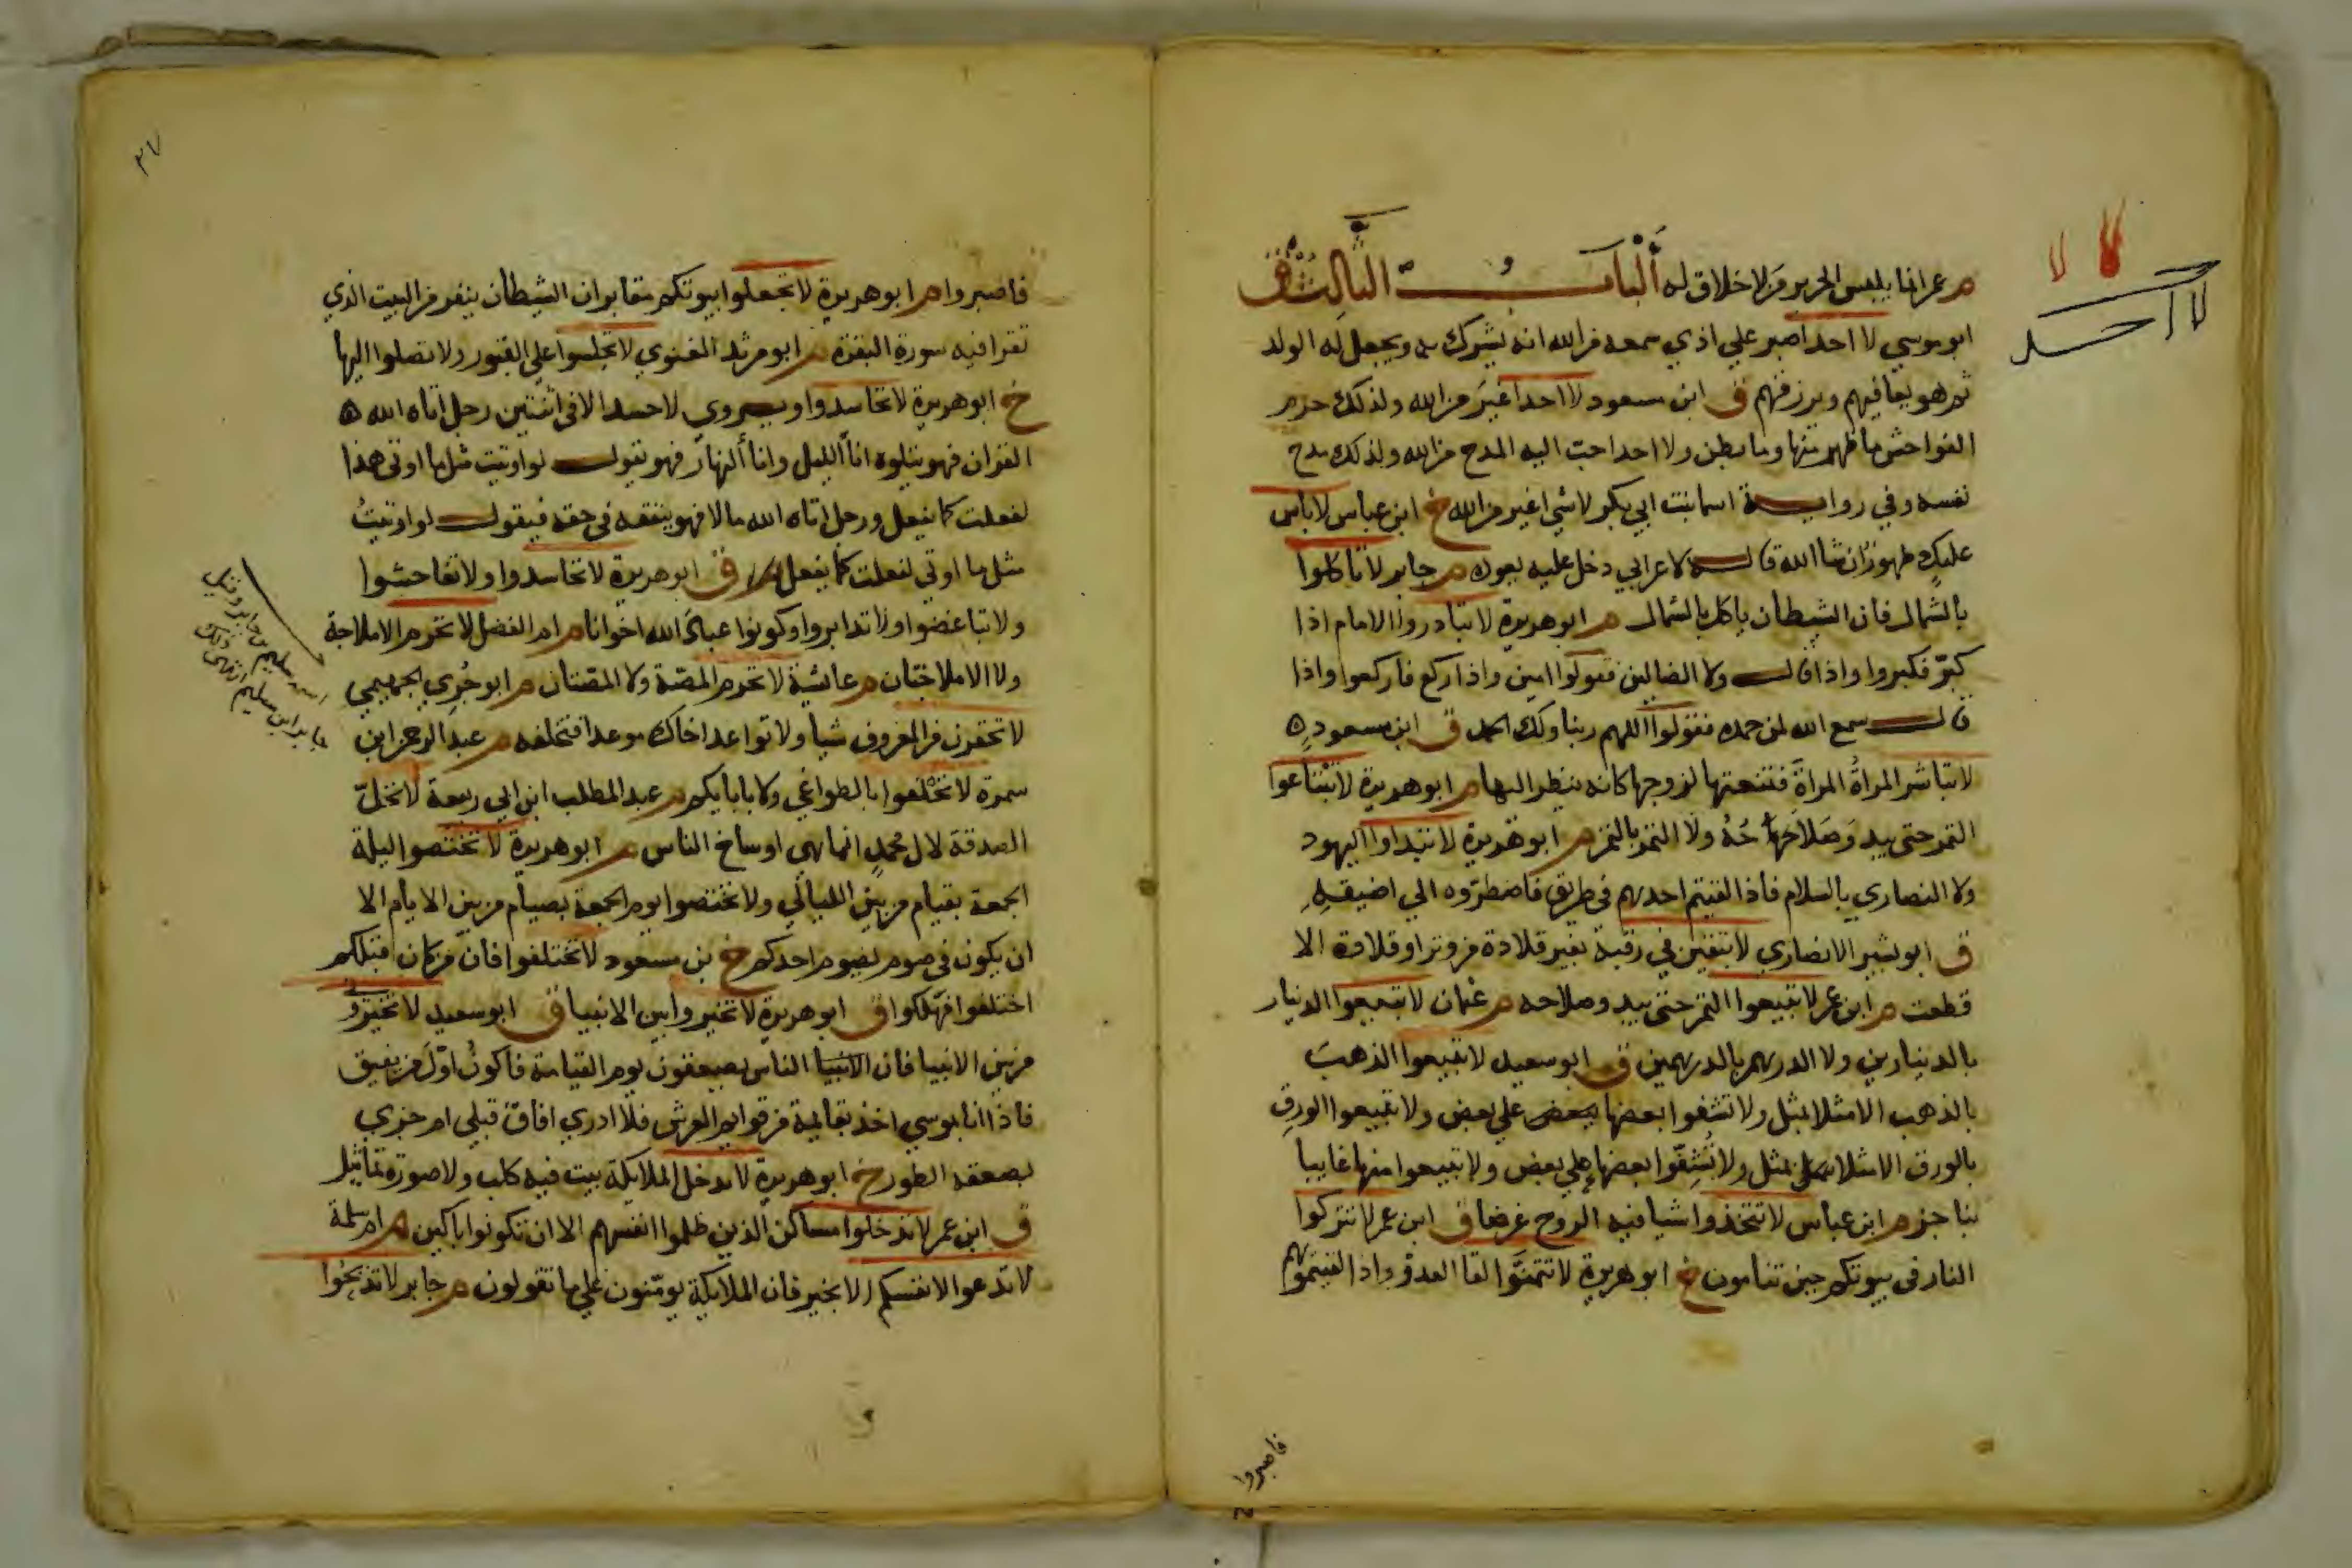 م عمر انما يلبس الحرير من لا خلاق له الباب الثالث ق
ابو موسي لا احد اصبر علي اذي سمعه من الله انه يشرك به ويجعل له الولد
ثم هو يعافيهم ويرزقهم ق ابن مسعود لا احد اغير من الله ولذلك حرم
الفواحش ما ظهر منها وما بطن ولا احد احب اليه المدح من الله ولذلك مدح
نفسه وفي رواية اسما بنت ابي بكر لا شي اغير من الله خ ابن عباس لا باس
عليك طهور ان شا الله قاله لاعرابي دخل عليه يعوده م جابر لا تاكلوا
بالشمال فان الشيطان ياكل بالشمال م ابو هريرة لا تبادروا الامام اذا
كبر فكبروا واذا قال ولا الضالين فقولوا امين واذا ركع فاركعوا واذا
قال سمع الله لمن حمده فقولوا اللهم ربنا ولك الحمد ق ابن مسعود
لا تباشر المراة المراة فتنعتها لزوجها كانه ينظر اليها م ابو هريرة لا تبتاعوا
الثمر حتى يبد وصلاحه ولا الثمر بالتمر م ابو هريرة لا تبداوا اليهود
ولا النصاري بالسلام فاذا لقيتم احدهم في طريق فاضطروه الي اضيقه
ق ابو بشير الانصاري لا تبقين في رقبة بعير قلادة من وتر او قلادة الا
قطعت م ابن عمر لا تبيعوا الثمر حتى يبد وصلاحه م عثمان لا تبيعوا الدينار
بالدينارين ولا الدرهم بالدرهمين ق ابو سعيد لا تبيعوا الذهب
بالذهب الا مثلا بمثل ولا تشفوا بعضها علي بعض ولا تبيعوا الورق
بالورق الا مثلا بمثل ولا تشفوا بعضها علي بعض ولا تبيعوا منها غايبا
بناجز م ابن عباس لا تتخذوا شيا فيه الروح غرضا ق ابن عمر لا تتركوا
النار في بيوتكم حين تنامون خ ابو هريرة لا تتمنوا لقا العدو واذا لقيتموهم
لا لا
لا احد
فاصبروا
٣٧
فاصبروا م ابو هريرة لا تجعلوا بيوتكم مقابر ان الشيطان ينفر من البيت الذي
تقرا فيه سورة البقرة م ابو مرثد الغنوي لا تجلسوا علي القبور ولا تصلوا اليها
خ ابو هريرة لا تحاسدوا ويروي لا حسد الا في اثنتين رجل اتاه الله
القران فهو يتلوه انا الليل وانا النهار فهو يقول لو اوتيت مثل ما اوتي هذا
لفعلت كما يفعل ورجل اتاه الله مالا فهو ينفقه في حقه فيقول لو اوتيت
مثل ما اوتي لفعلت كما يفعل ق ابو هريرة لا تحاسدوا ولا تفاحشوا
ولا تباغضوا ولا تدابروا وكونوا عباد الله اخوانا م ام الفضل لا تحرم الاملاجة
ولا الاملاجتان م عائشة لا تحرم المصة ولا المصتان م ابو جري الجهيمي
لا تحقرن من المعروف شيا ولا تواعد اخاك موعدا فتخلفه م عبد الرحمن ابن
سمرة لا تحلفوا بالطواغي ولا بابايكم م عبد المطلب ابن ابي ربيعة لا تحل
الصدقة لال محمد انما هي اوساخ الناس م ابو هريرة لا تختصوا ليلة
الجمعة بقيام من بين الليالي ولا تختصوا يوم الجمعة بصيام من بين الايام الا
ان يكون في صوم يصوم احدكم خ بن مسعود لا تختلفوا فان من كان قبلكم
اختلفوا فهلكوا ق ابو هريرة لا تخيروا بين الانبيا ق ابو سعيد لا تخيروني
من بين الانبيا فان الانبيا الناس يصعقون يوم القيامة فاكون اول من يفيق
فاذا انا بموسي اخذ بقايمة من قوايم العرش فلا ادري افاق قبلي ام جزي
بصعقه الطور خ ابو هريرة لا تدخل الملايكة بيت فيه كلب ولا صورة تماثيل
ق ابن عمر لا تدخلوا مساكن الذين ظلموا انفسهم الا ان تكونوا باكين م ام سلمة
لا تدعوا لانفسكم الا بخير فان الملايكة يومنون علي ما تقولون م جابر لا تذبحوا
اسمه سليم بن جابر وقيل
جابر ابن سليم انتهى